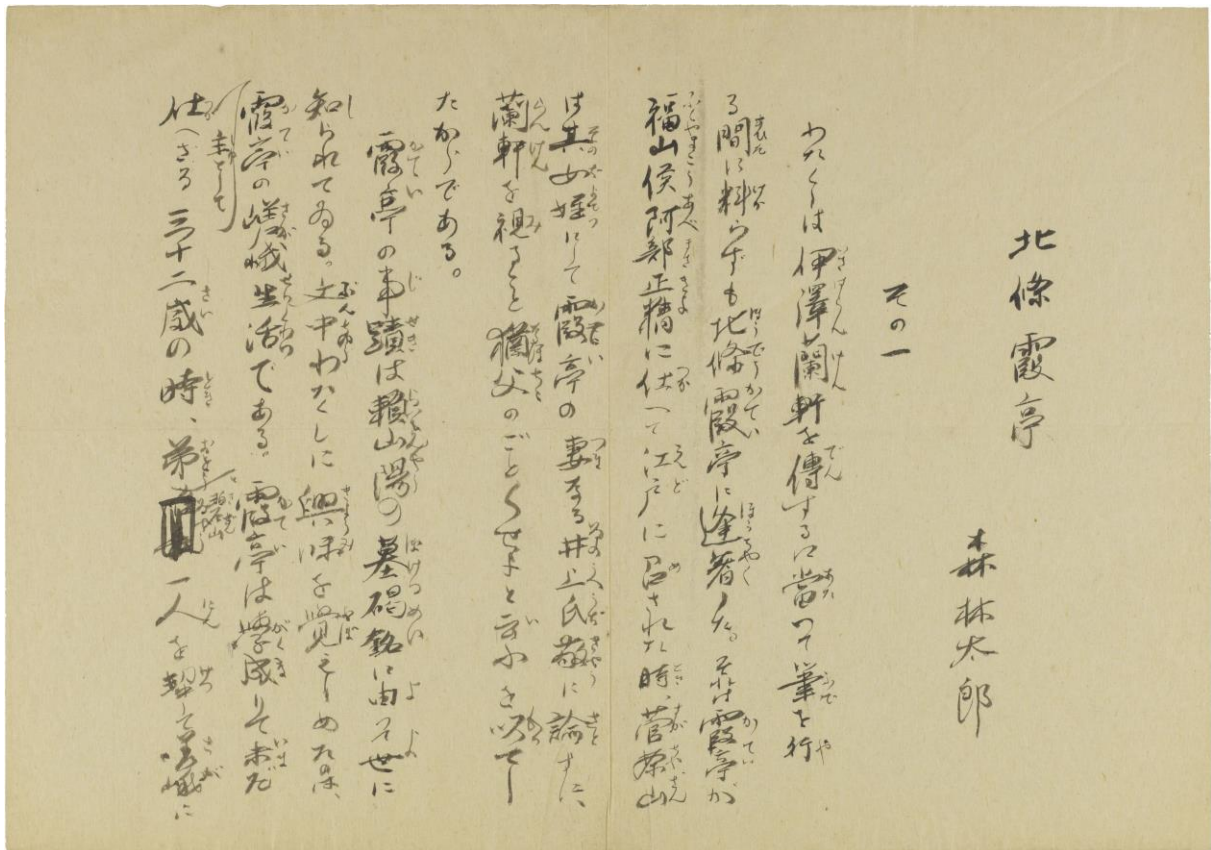 北條霞亭
森林太郎
その一
わたくしは伊澤蘭軒を傳するに當つて筆を行
る間に料らずも北條霞亭に逢著した。それは霞亭が
福山侯阿部正精に仕へて江戸に召された時、菅茶山
は其女姪にして霞亭の妻なる井上氏敬に諭すに、
蘭軒を視ること猶父のごとくせよと云ふを以てし
たからである。
霞亭の事蹟は賴山陽の墓碣銘に由つて世に
知られてゐる。文中わたくしに興味を覺えしめたのは、
霞亭の嵯峨生活である。霞亭は學成りて未だ
仕へざる三十二歳の時、弟碧山一人を挈して嵯峨に